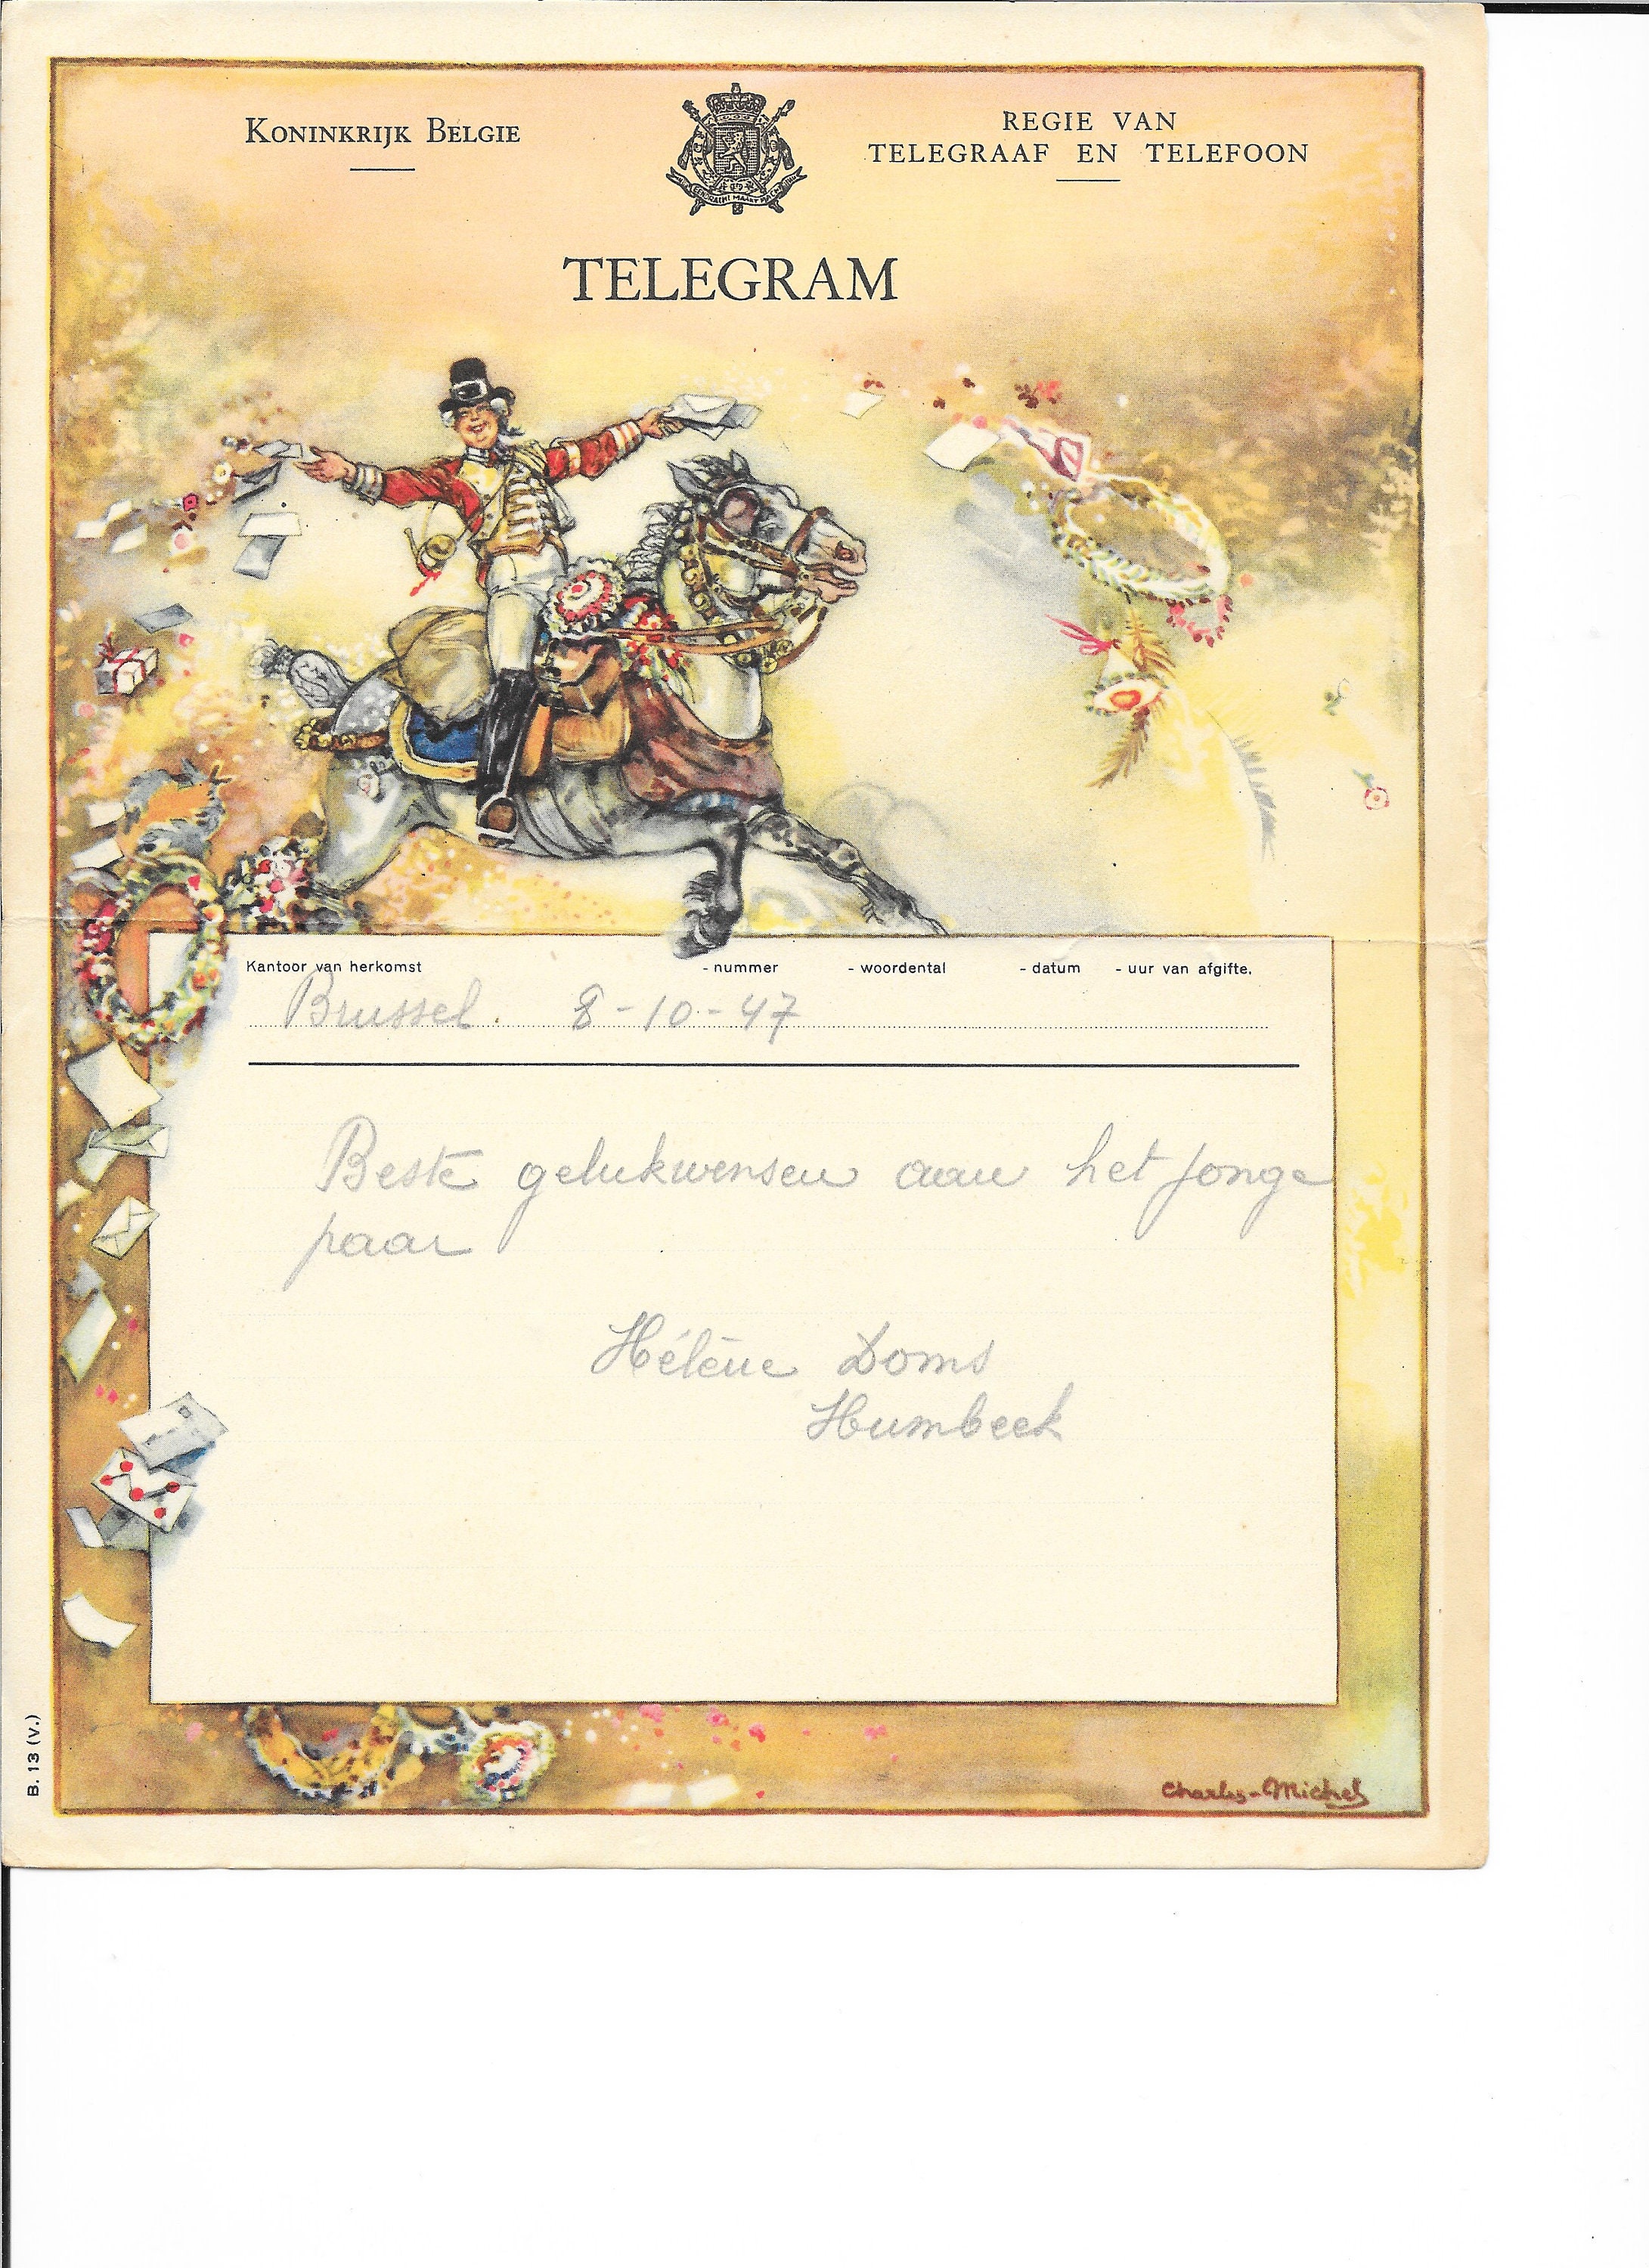 KONINKRIJK BELGIE
REGIE VAN
TELEGRAAF EN TELEFOON
TELEGRAM
Kantoor van herkomst - nummer - woordental - datum - uur van afgifte.
Brussel. 8-10-47
Beste gelukwensen aan het jonge
paar
Hélène Doms
Humbeek
B. 13 (v.)
Charles-Michel